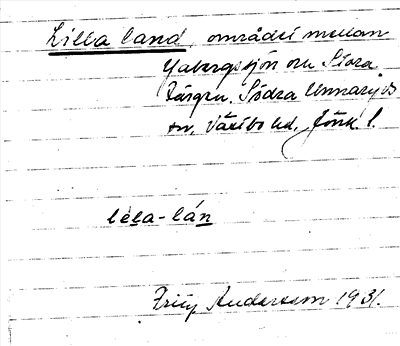 Lilla land, området mellan
Yabergssjön och Stora
Färgen, Södra Unnaryds
sn, Västbo hd, Jönk. l.
lėla-lán
Fritz Andersson 1931.